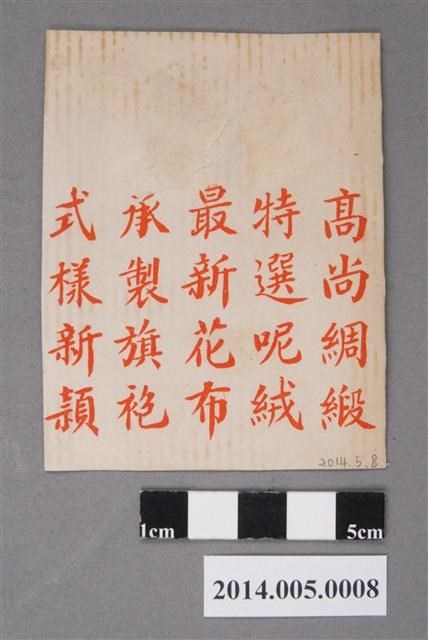 高尚綢緞
特選呢絨
最新花布
承製旗袍
式樣新頴
2014.5.8
1cm
5cm
2014.005.0008